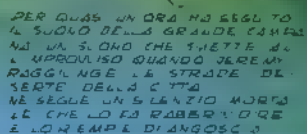 PER QUAS UN ORA HA SEGU TO
IL SUONO DELLA GRANDE CAMPA
NA UN SUONO CHE SMETTE ALL
IMPROVVISO QUANDO JEREMY
RAGGIUNGE LE STRADE DE
SERTE DELLA C TTA
NE SEGUE UN SILENZIO MORTA
LE CHE LO FA RABBRIVIDIRE
E LO RIEMPIE DI ANGOSCIA